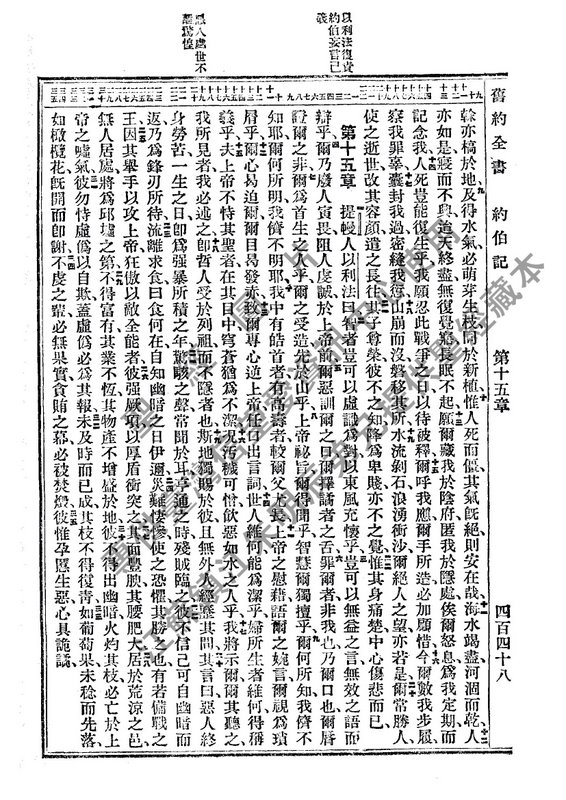 舊約全書　約伯記　第十五章　四百四十八
以利法復責
約伯妄言已
義
惡人處世不
離驚惶
幹亦槁於地及得水氣必萌芽生枝同於新植惟人死而僵其氣旣絕則安在哉海水竭盡河涸而乾人
亦如是寢而不興迨天終盡無復覺焉長眠不起願爾藏我於陰府匿我於隱處俟爾怒息爲我定期而
記念我人死豈能復生乎我願忍此戰爭之日以待被釋爾呼我應爾手所造必加顧惜今爾數我步履
察我罪辜囊封我過密縫我愆山崩而沒磐移其所水流剝石浪湧衝沙爾絕人之望亦若是爾常勝人
使之逝世改其容顏遣之長往其子尊榮彼不之知降爲卑賤亦不之覺惟其身痛楚中心傷悲而已
第十五章　提幔人以利法曰智者豈可以虛誕爲對以東風充懷乎豈可以無益之言無效之語而
辯乎爾乃廢人寅畏阻人虔誠於上帝前爾惡訓爾之口爾擇譎者之舌罪爾者非我也乃爾口也爾唇
證爾之非爾爲首生之人乎爾之受造先於山乎上帝祕旨爾得聞乎智慧爾獨擅乎爾何所知我儕不
知耶爾何所明我儕不明耶我中有皓首者有高壽者較爾父尤長上帝之慰藉語爾之婉言爾視爲瑣
屑乎爾心曷迫爾爾目曷發赤致爾專心逆上帝任口出言詞世人維何能爲潔乎婦所生者維何得稱
義乎夫上帝不恃其聖者在其目中穹蒼猶爲不潔况汚穢可憎飲惡如水之人乎我將示爾爾其聽之
我所見者我必述之卽哲人受於列祖而不隱者也斯地獨賜於彼且無外人經歷其間其言曰惡人終
身勞苦一生之日卽爲强暴所積之年驚駭之聲常聞於耳亨通之時殘賊臨之彼不信己可自幽暗而
返乃爲鋒刃所待流離求食曰食何在自知幽暗之日伊邇災難悽慘使之恐懼其勝之也有若備戰之
王因其舉手以攻上帝狂傲以敵全能者彼强厥項以厚盾衝突之其面肥腴其腰肥大居於荒涼之邑
無人居處將爲邱墟之第不得富有其業不恆其物產不增盛於地彼不得出幽暗火灼其枝必亡於上
帝之噓氣彼勿恃虛僞以自欺蓋虛僞必爲其報未及時而已成其枝不得復青如葡萄果未稔而先落
如橄欖花旣開而卽謝不虔之輩必無果實貪賄之幕必被焚燬彼惟孕匿生惡心具詭譎